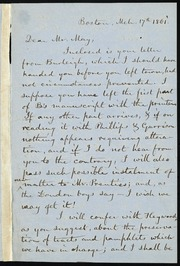 Boston, Feb. 17th 1861
Dear Mr. May,
Inclosed is your letter
from Burleigh, which I should have
handed you before you left town, had
not circumstances prevented. I
suppose you have left the first part
of B's manuscript with the printers.
If any other part arrives, & if on
reading it with Phillips & Garrison
nothing appears requiring altera-
tion, and if I do not hear from
you to the contrary, I will also
pass such possible instalment of
matter to Mr. Prentiss; and, as
the London boys say – I wish we
may get it!
I will confer with Heywood,
as you suggest, about the preserva-
tion of tracts and pamphlets which
we have in charge; and I shall be